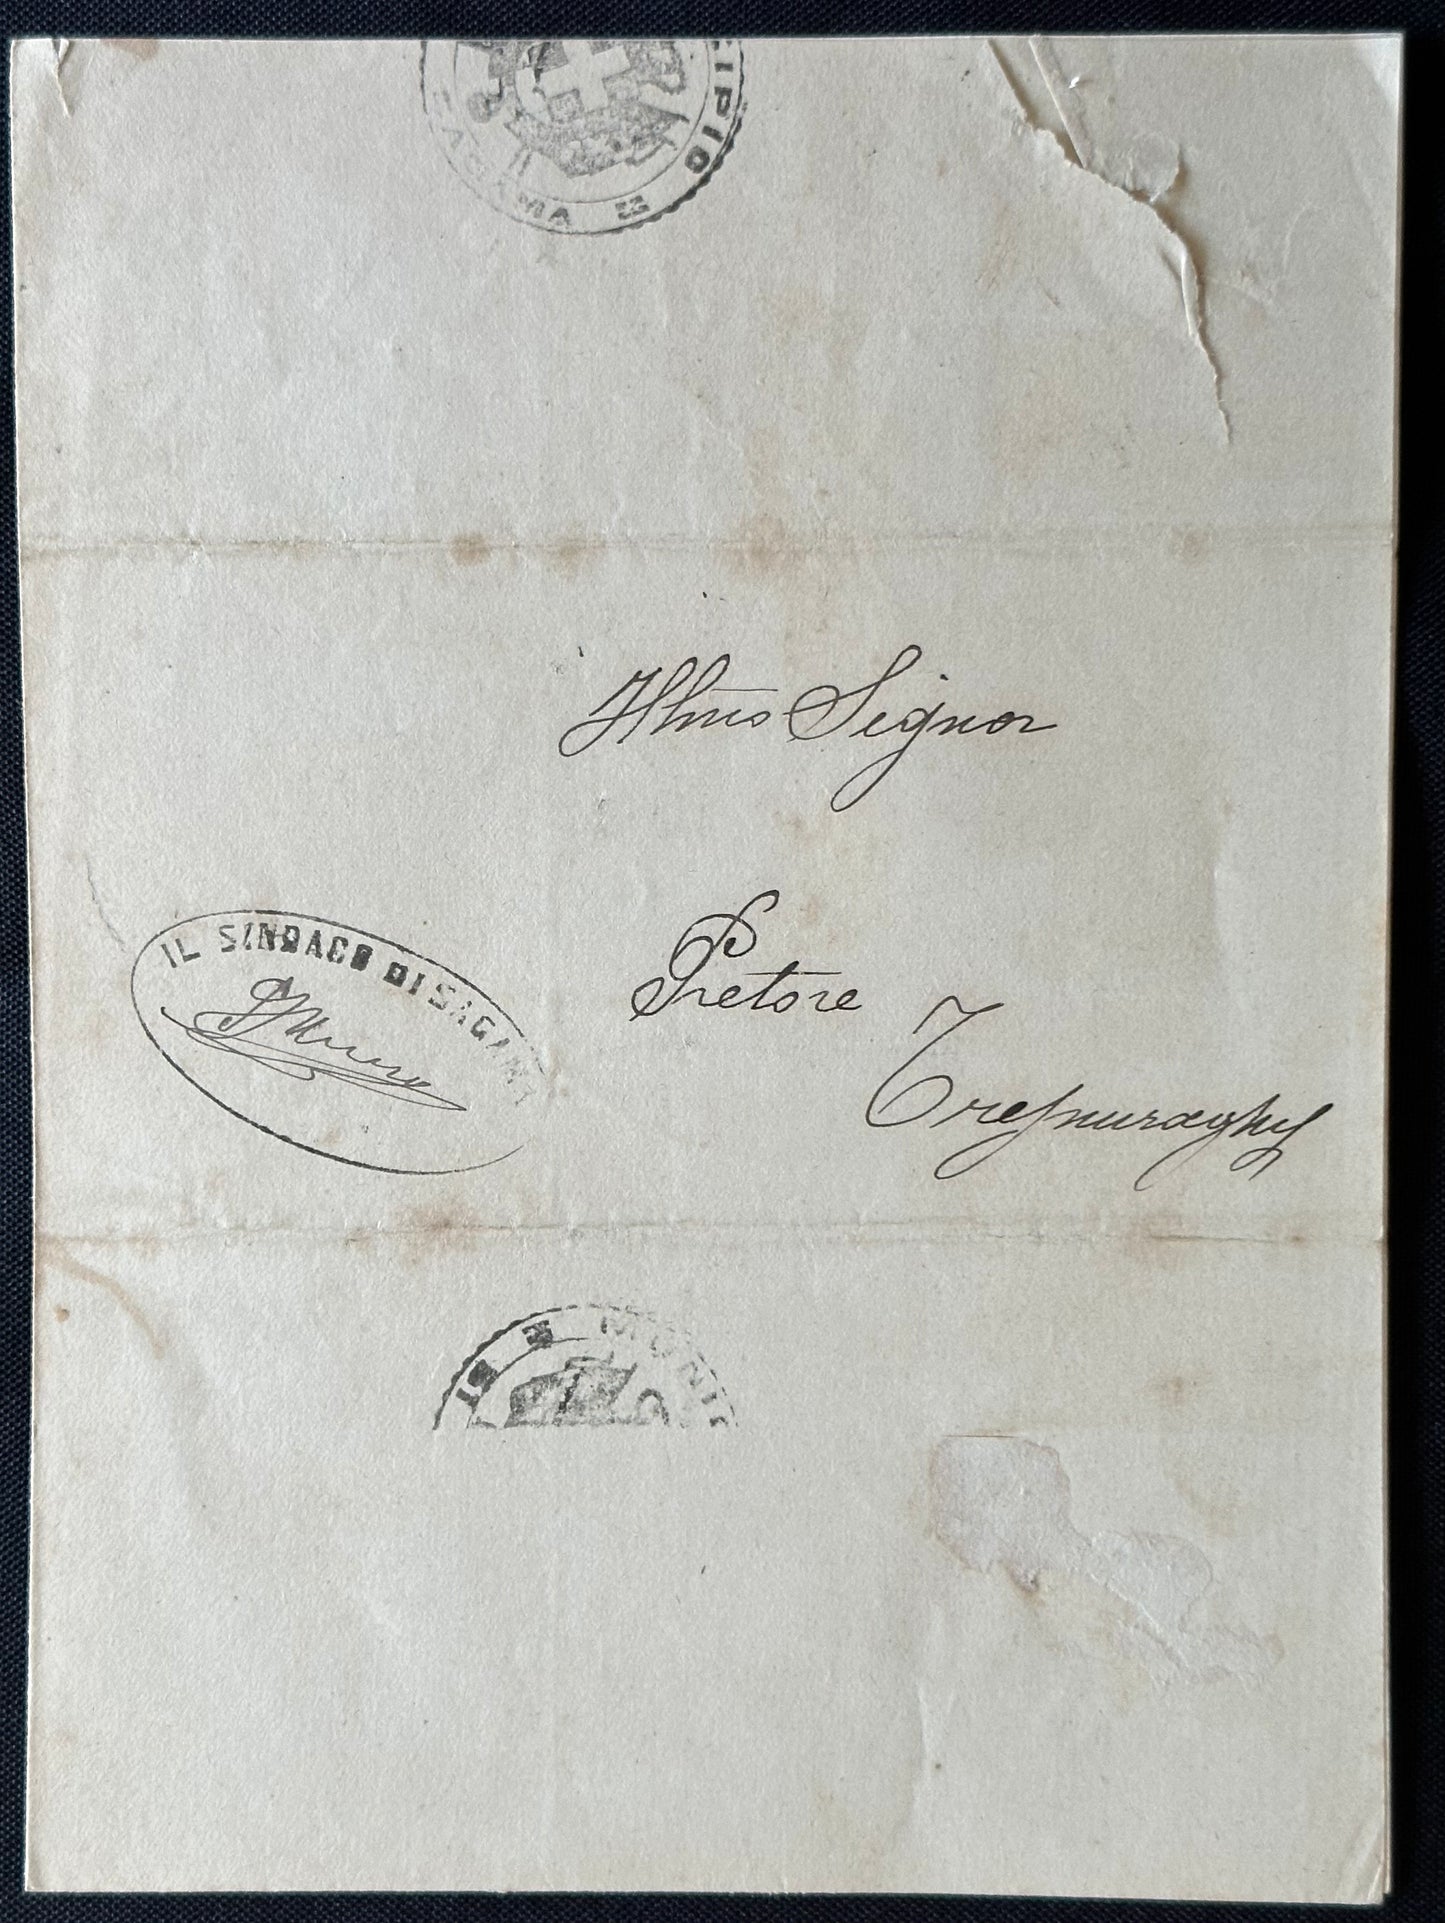 CIPIO
Illmo Signor
Pretore
Tresnuraghes
IL SINDACO DI SAGAMA
MUNI